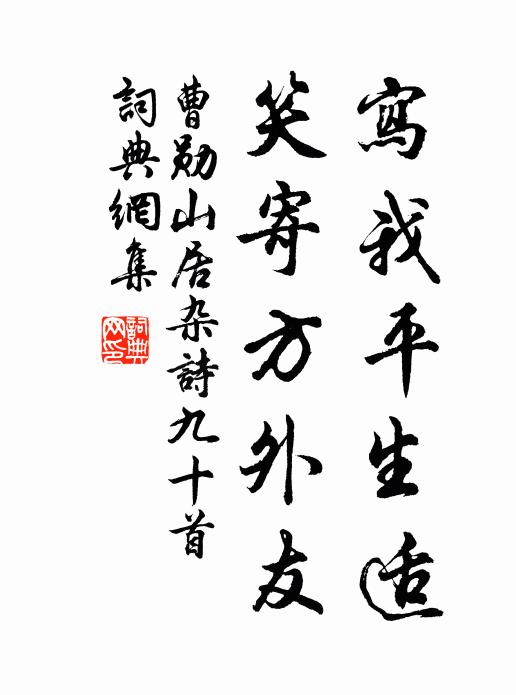 寫我平生适
笑寄方外友
曹勋山居杂詩九十首
詞典網集
詞典網印